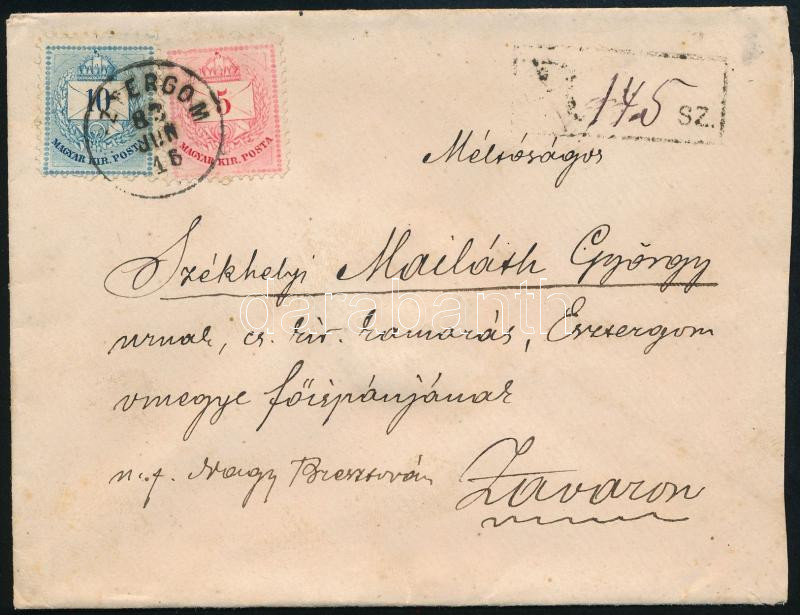 10 5
MAGYAR KIR. POSTA MAGYAR KIR. POSTA
ESZTERGOM
83
JUN
16
145 SZ.
Méltóságos
Székhelyi Mailáth György
urnak, cs. kir. kamarás, Esztergom
vmegye főispánjának
u. f. Nagy Bresztován Zavaron
darabanth